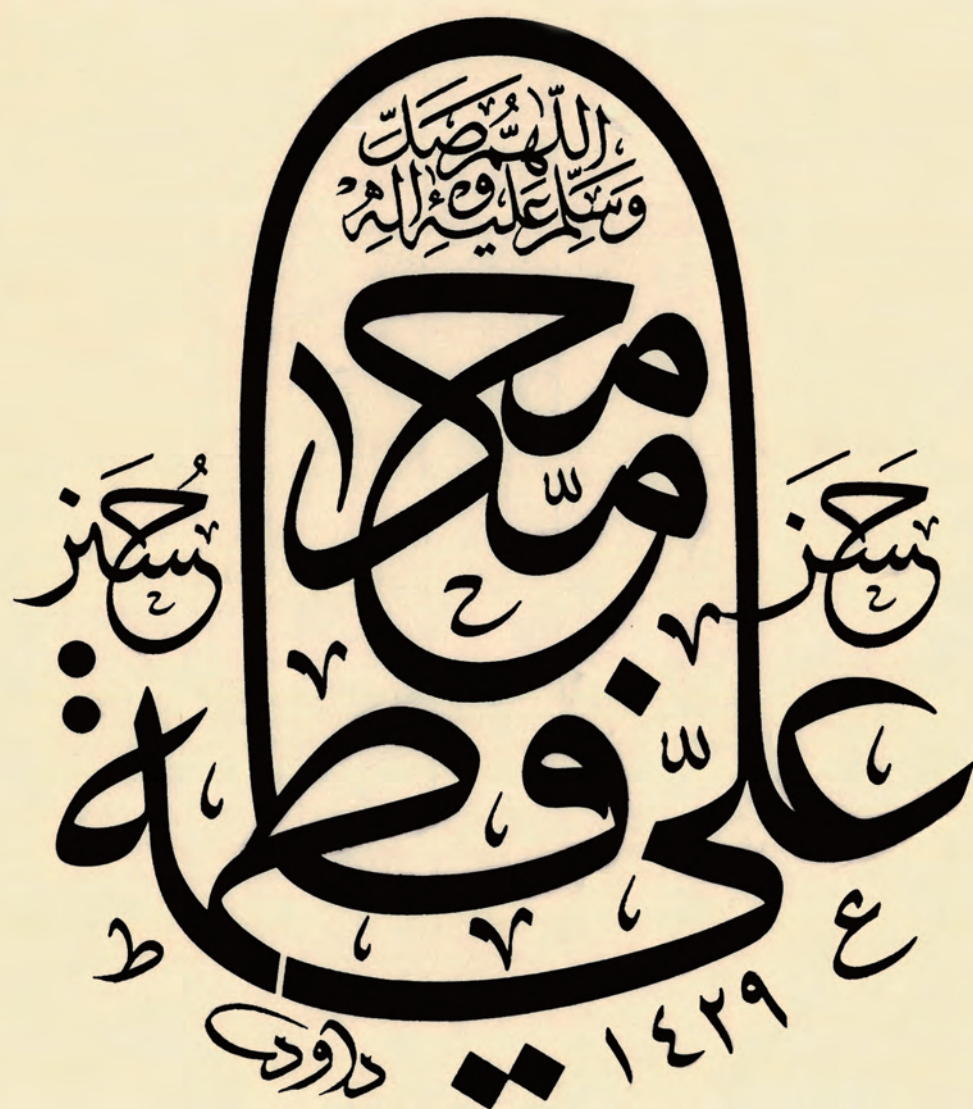 اللّٰهُمَّ صَلِّ
وَسَلِّمْ عَلَيْهِ وَاٰلِهِ
محمد
حَسَن
حُسَين
علىّ فاطمة
١٤٢٩
داود